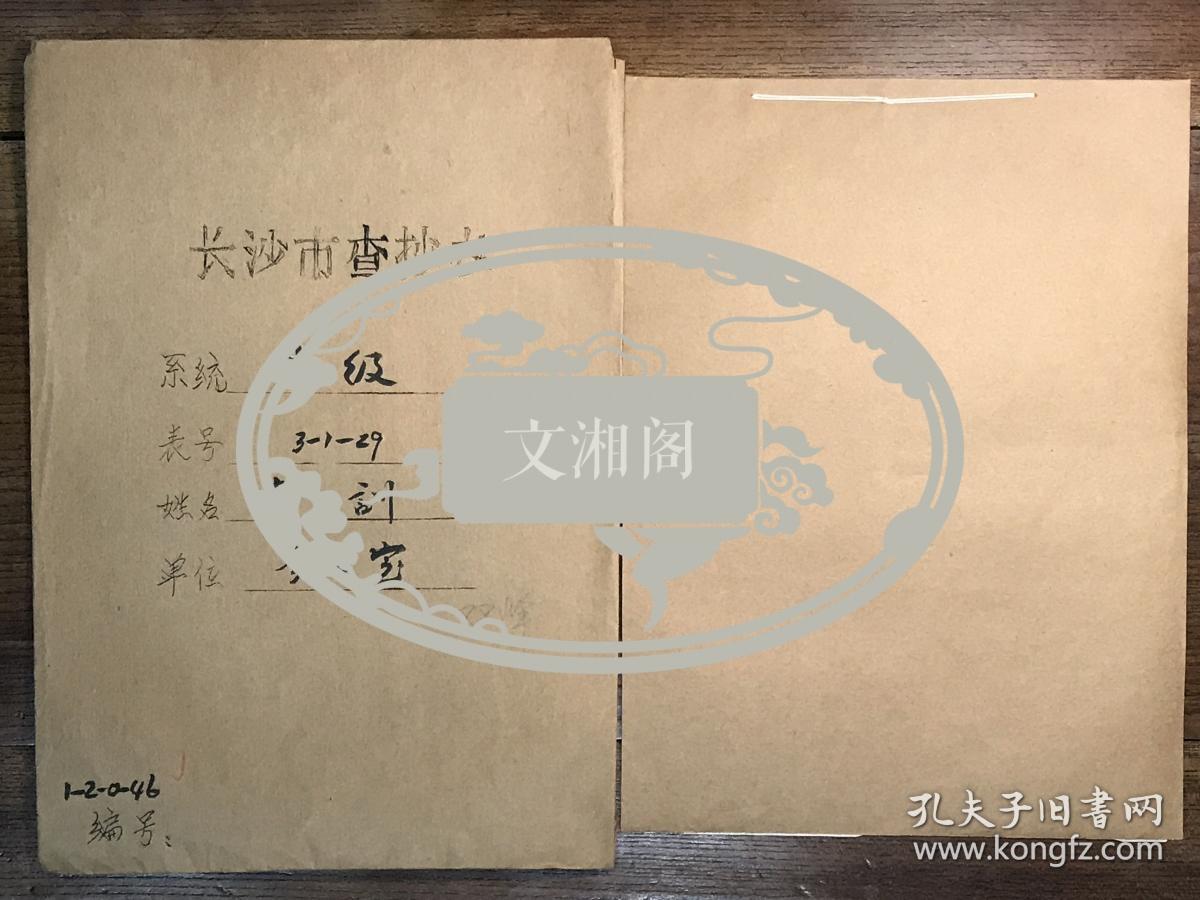 长沙市查抄
系统 级
表号 3-1-29
姓名 訓
单位 室
1-2-0-46
编号：
文湘阁
孔夫子旧書网
www.kongfz.com